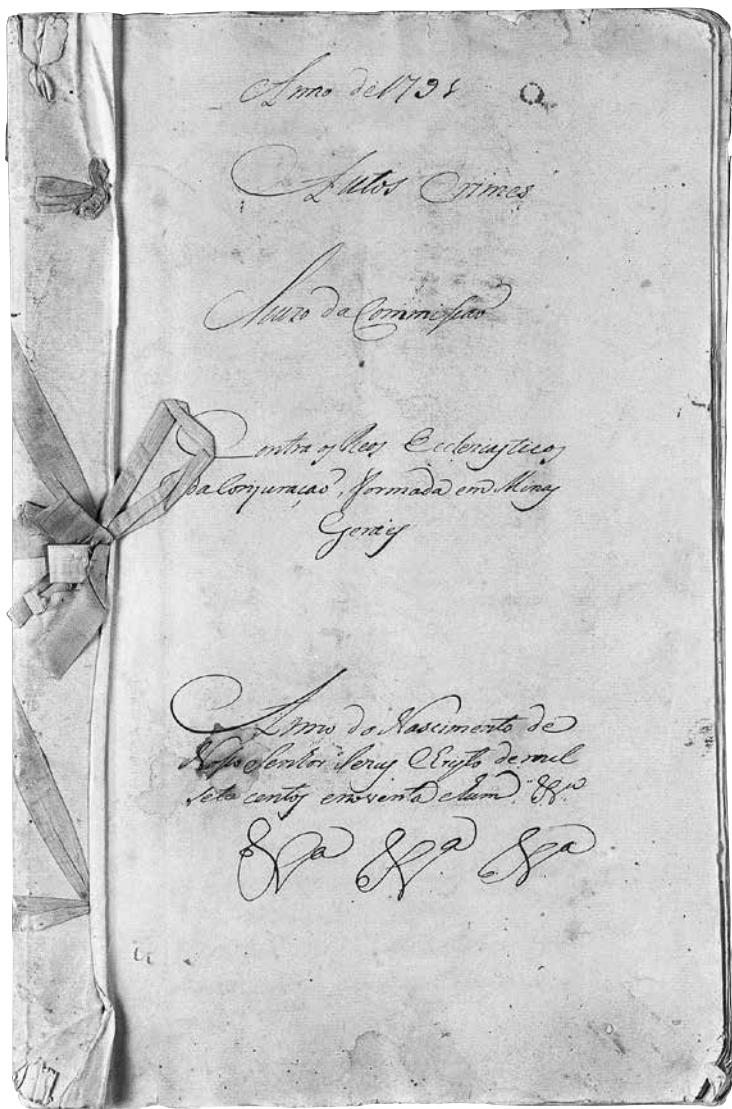 Anno de 1791
Autos Crimes
Juizo da Commissaõ
Contra os Reos Ecclesiasticos
da Conjuraçaõ, formada em Minas
Geraes
Anno do Nascimento de
Nosso Senhor Jesus Christo de mil
sete centos enoventa ehum